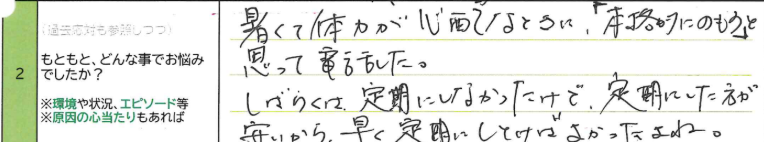 (過去応対も参照しつつ)
2
もともと、どんな事でお悩み
でしたか?
※環境や状況、エピソード等
※原因の心当たりもあれば
暑くて体力が心配なときに、「本格的にのもう」と
思って電話した。
しばらくは、定期にしなかったけど、定期にした方が
安いから、早く定期にしとけばよかったよね。